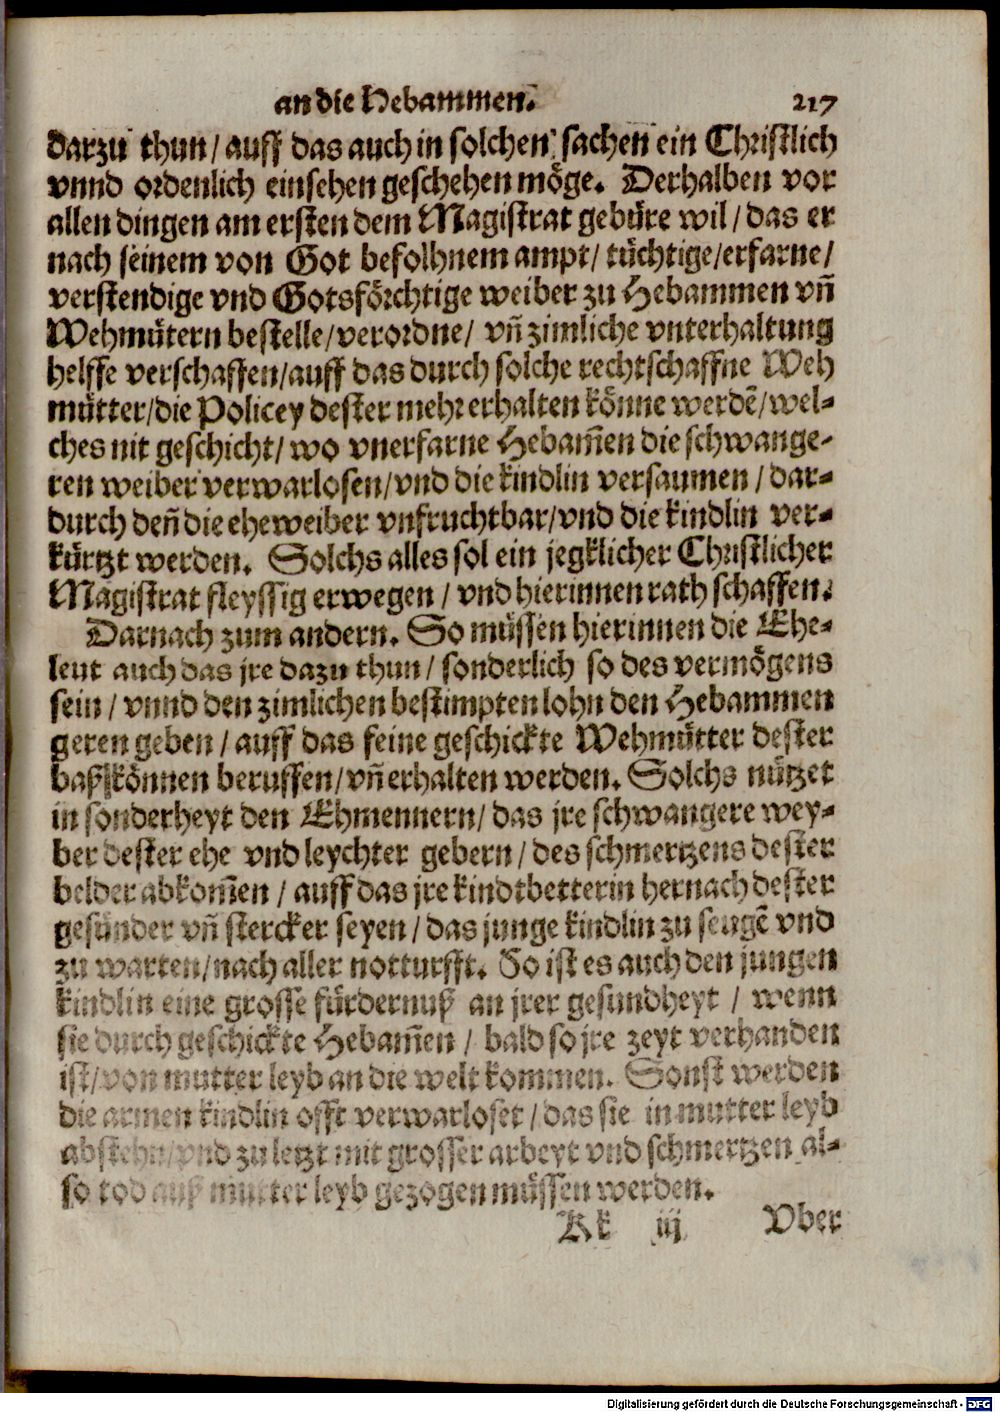 an die Hebammen. 217
darzu thun / auff das auch in solchen sachen ein Christlich
vnnd ordenlich einsehen geschehen möge. Derhalben vor
allen dingen am ersten dem Magistrat gebüre wil / das er
nach seinem von Got befolhnem ampt / tüchtige / erfarne /
verstendige vnd Gotsförchtige weiber zu Hebammen vn̄
Wehmütern bestelle / verordne / vn̄ zimliche vnterhaltung
helffe verschaffen / auff das durch solche rechtschaffne Weh
mütter / die Policey dester mehr erhalten könne werdē / wel-
ches nit geschicht / wo vnerfarne Hebam̄en die schwange-
ren weiber verwarlosen / vnd die kindlin versaumen / dar-
durch den̄ die eheweiber vnfruchtbar / vnd die kindlin ver-
kürtzt werden. Solchs alles sol ein jegklicher Christlicher
Magistrat fleyssig erwegen / vnd hierinnen rath schaffen.
Darnach zum andern. So müssen hierinnen die Ehe-
leut auch das jre dazu thun / sonderlich so des vermögens
sein / vnnd den zimlichen bestimpten lohn den Hebammen
geren geben / auff das feine geschickte Wehmütter dester
baß können beruffen / vn̄ erhalten werden. Solchs nützet
in sonderheyt den Ehmennern / das jre schwangere wey-
ber dester ehe vnd leychter gebern / des schmertzens dester
belder abkom̄en / auff das jre kindtbetterin hernach dester
gesünder vn̄ stercker seyen / das junge kindlin zu seugē vnd
zu warten / nach aller notturfft. So ist es auch den jungen
kindlin eine grosse fürdernuß an jrer gesundheyt / wenn
sie durch geschickte Hebam̄en / bald so jre zeyt verhanden
ist / von mutter leyb an die welt kommen. Sonst werden
die armen kindlin offt verwarloset / das sie in mutter leyb
abstehn / vnd zu letzt mit grosser arbeyt vnd schmertzen al-
so tod auß mutter leyb gezogen müssen werden.
Kk iij Vber
Digitalisierung gefördert durch die Deutsche Forschungsgemeinschaft - DFG